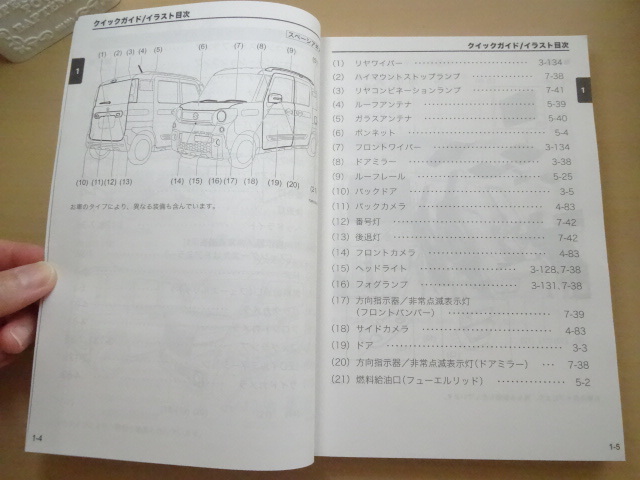 クイックガイド/イラスト目次
スペーシアギ
(1) (2) (3) (4) (5) (6) (7) (8) (9)
1
(10) (11) (12) (13) (14) (15) (16) (17) (18) (19) (20) (21
お車のタイプにより、異なる装備も含んでいます。
1-4
クイックガイド/イラスト目次
1
(1) リヤワイパー ………… 3-134
(2) ハイマウントストップランプ ………… 7-38
(3) リヤコンビネーションランプ ………… 7-41
(4) ルーフアンテナ ………… 5-39
(5) ガラスアンテナ ………… 5-40
(6) ボンネット ………… 5-4
(7) フロントワイパー ………… 3-134
(8) ドアミラー ………… 3-38
(9) ルーフレール ………… 5-25
(10) バックドア ………… 3-5
(11) バックカメラ ………… 4-83
(12) 番号灯 ………… 7-42
(13) 後退灯 ………… 7-42
(14) フロントカメラ ………… 4-83
(15) ヘッドライト ………… 3-128、7-38
(16) フォグランプ ………… 3-131、7-38
(17) 方向指示器/非常点滅表示灯
(フロントバンパー) ………… 7-39
(18) サイドカメラ ………… 4-83
(19) ドア ………… 3-3
(20) 方向指示器/非常点滅表示灯(ドアミラー) … 7-38
(21) 燃料給油口(フューエルリッド) ………… 5-2
1-5